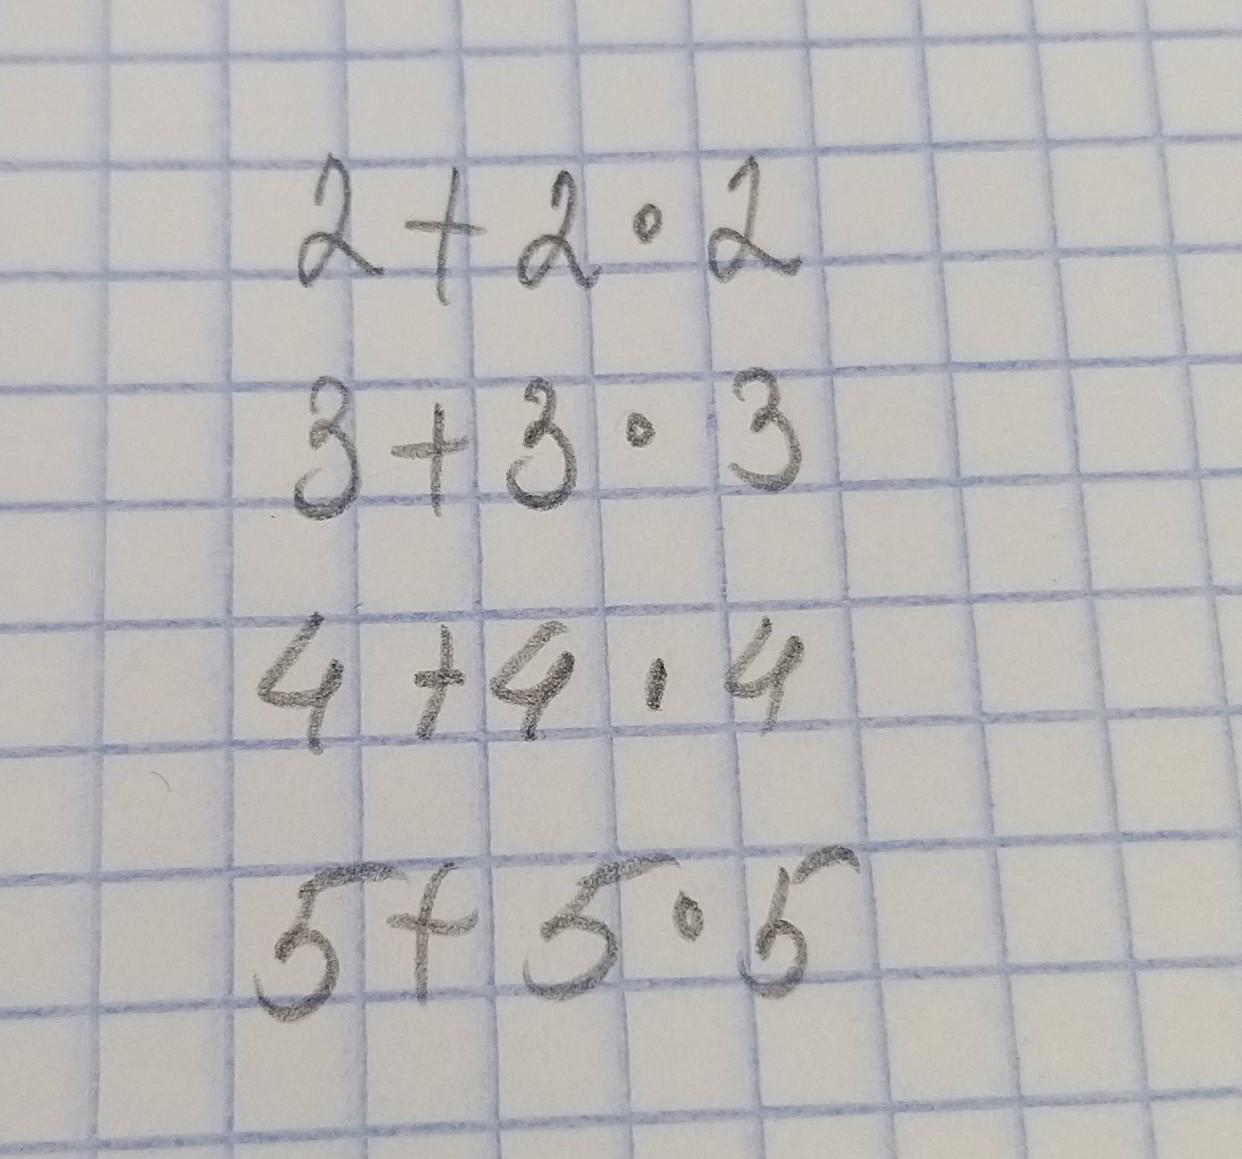 2 + 2 · 2
3 + 3 · 3
4 + 4 · 4
5 + 5 · 5